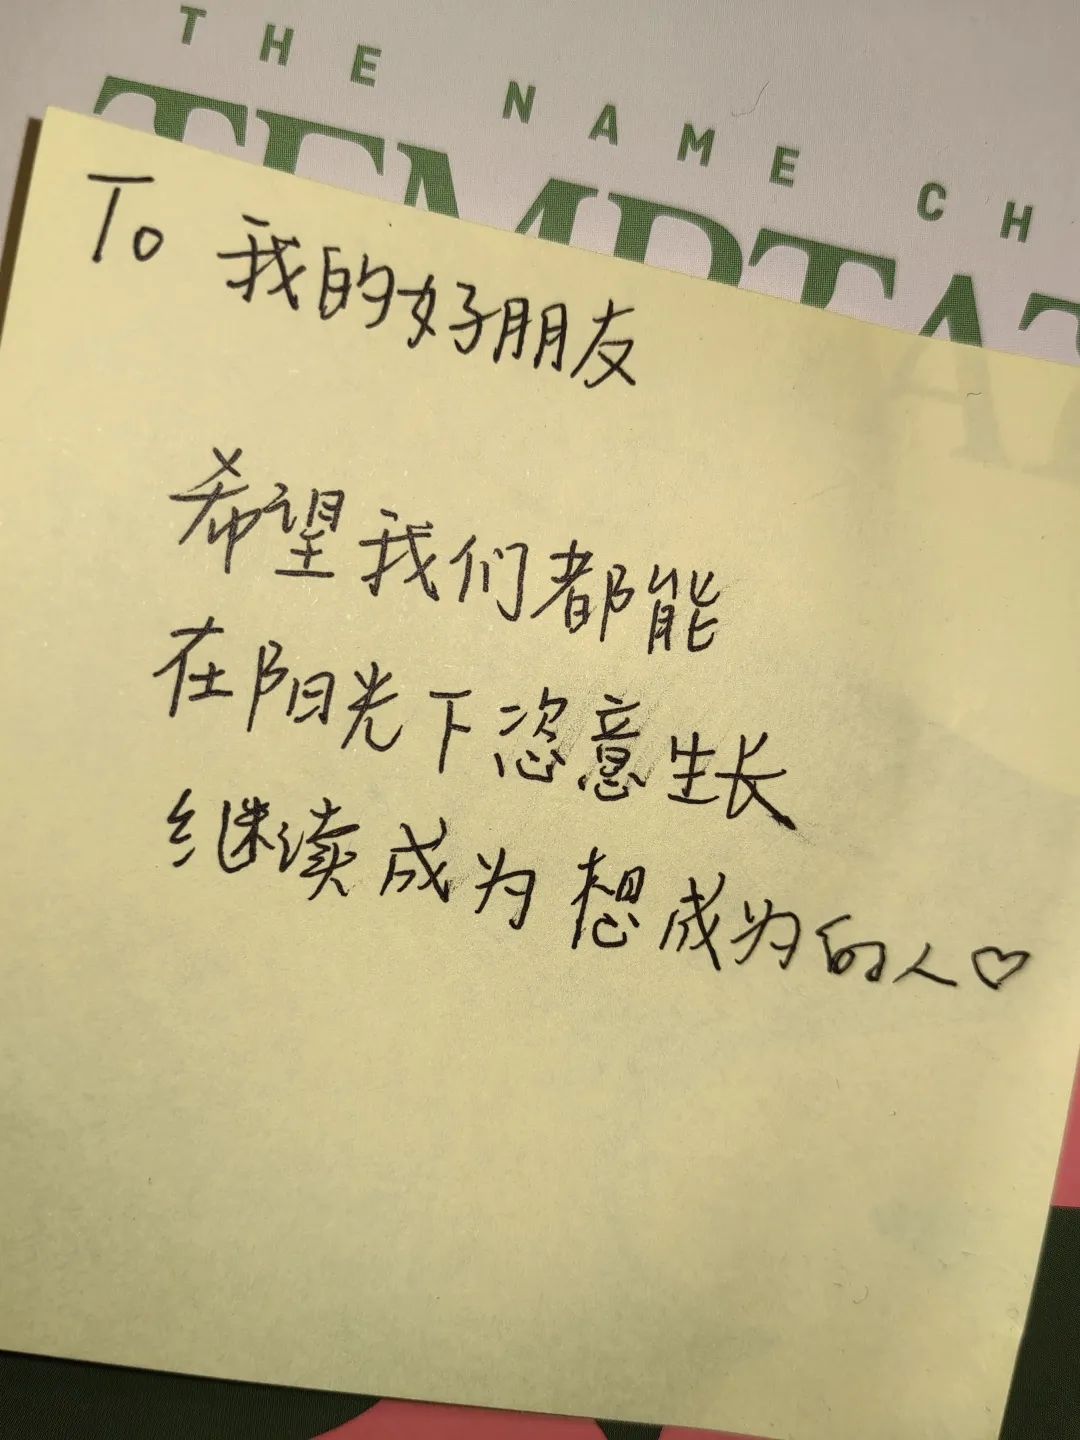 THE NAME CH
TEMPTAT
To 我的好朋友
希望我们都能
在阳光下恣意生长
继续成为想成为的人♡